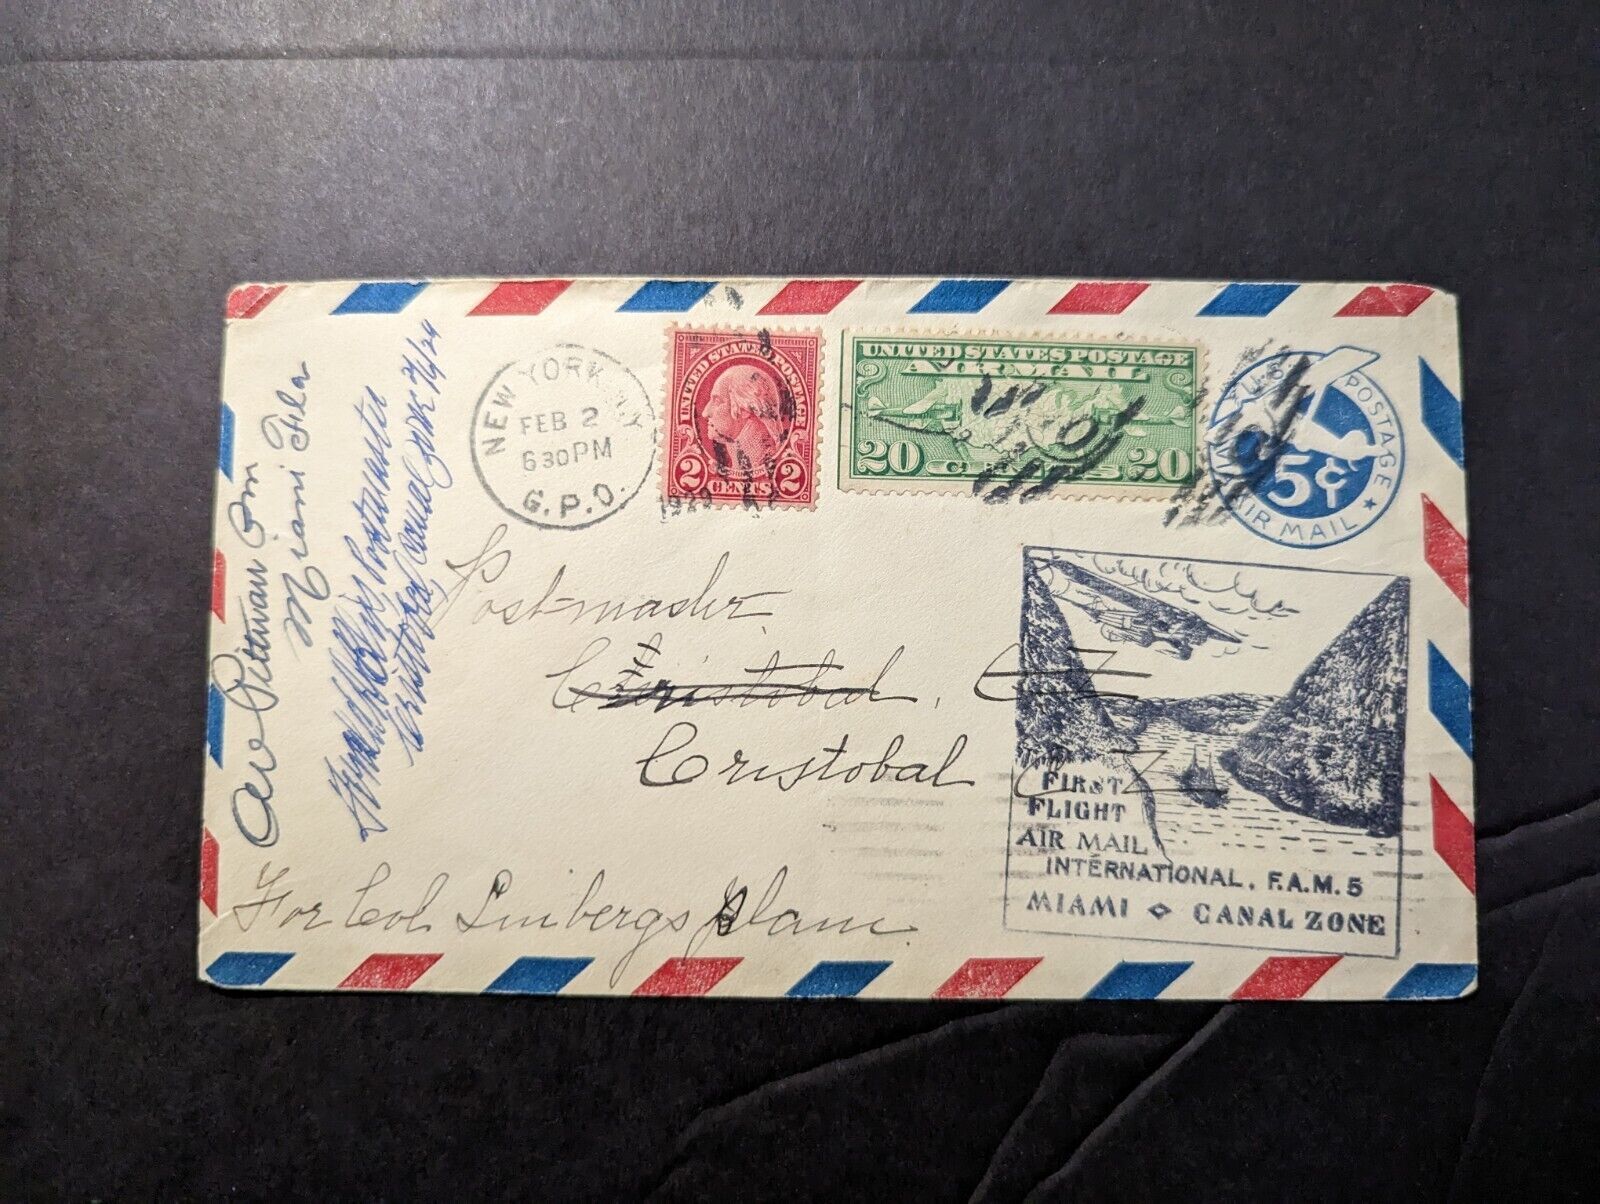 NEW YORK N.Y.
FEB 2
630 PM
G.P.O.
1929
UNITED STATES POSTAGE
2 CENTS 2
UNITED STATES POSTAGE
AIR MAIL
20 CENTS 20
U.S. POSTAGE
5¢
AIR MAIL
Postmaster
Cristobal, CZ
Cristobal C Z
For Col Linbergs plane.
FIRST
FLIGHT
AIR MAIL
INTERNATIONAL. F.A.M. 5
MIAMI CANAL ZONE
Pittman Pm
Miami Fla
Postmaster
Cristobal, Canal Zone